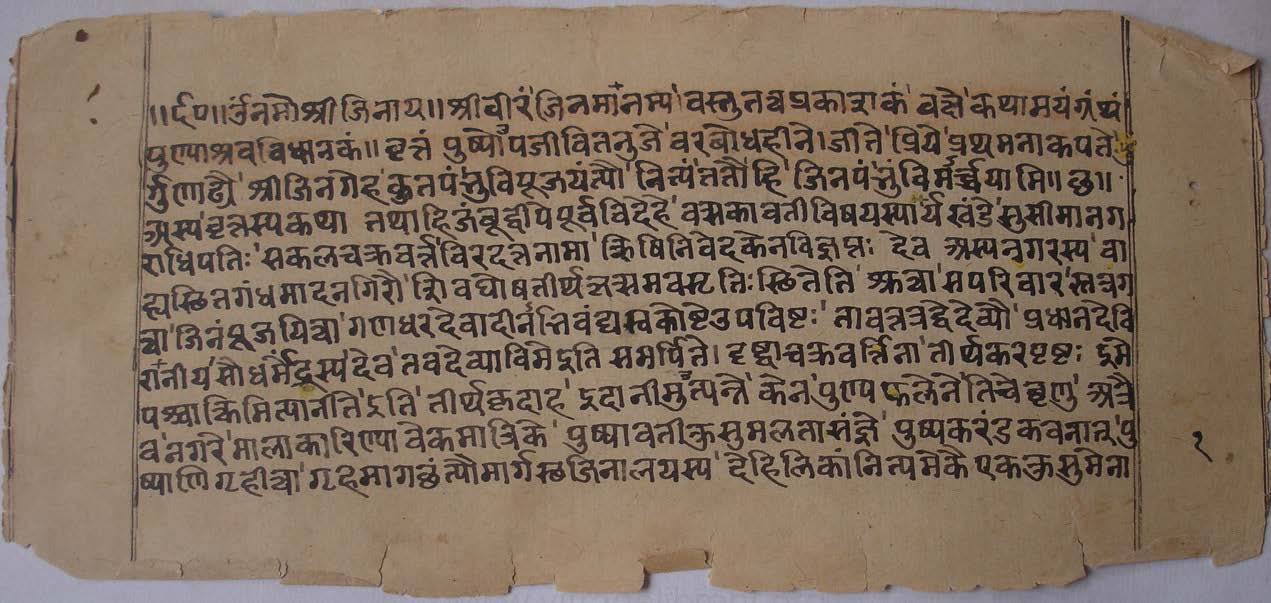 ॥ र्द५॥ र्उंनमो श्री जिनाय॥ श्री वीरं जिनमानम्य वस्तुतत्वप्रकाशकं वक्ष्ये कथामयं ग्रंथं
पुण्याश्रवविधानकं॥ वृत्तं पुष्पोपजीवितनुजे वरबोधहीने। जाते प्रिये प्रथमनाकपते
र्गुणाढ्ये श्री जिनगेहकुतपंभुविपूजयंत्यौ नित्यं ततो हि जिनपंभुविमर्च्चयामि॥ छ॥
अस्य वृत्तस्य कथा तथाहि जंबूद्वीपपूर्वविदेहे वत्सकावतीविषयस्यार्यखंडे सुसीमानग
राधिपतिः सकलचक्रवर्त्ती वरदत्तनामा ऋषिनिवेदकेनविज्ञप्तः देव अस्य नगरस्य वा
ह्यस्थितगंधमादनगिरौ शिवघोषतीर्थकृत्समवसृतिः स्थितेति श्रुत्वा सपरिवारस्तत्रग
त्वा जिनं पूजयित्वा गणधरदेवादीनभिवंद्य स्वकोष्टेउपविष्टः तावत्तत्रद्वेदेव्यौ प्रधानदेवै
रानीय सौधर्मेंद्रस्य देव तवदेव्याविमेइति समर्पिते। दृष्ट्वाचक्रवर्त्तिना तीर्थकरपृष्टः इमे
पश्चात्किमित्यानीतेइति तीर्थकृदाह इदानीमुत्पन्ने केन पुण्यफलेनेति चेत् शृणु अत्रै
व नगरे मालाकारिण्यावेकमातृके पुष्पावतीकुसुमलतासंज्ञे पुष्पकरंडकवनात्पु
ष्पाणि गृहीत्वा गृहमागच्छंत्यौ मार्गस्थजिनालयस्य देहिलिकां नित्यमेकैएककुसुमेना
१